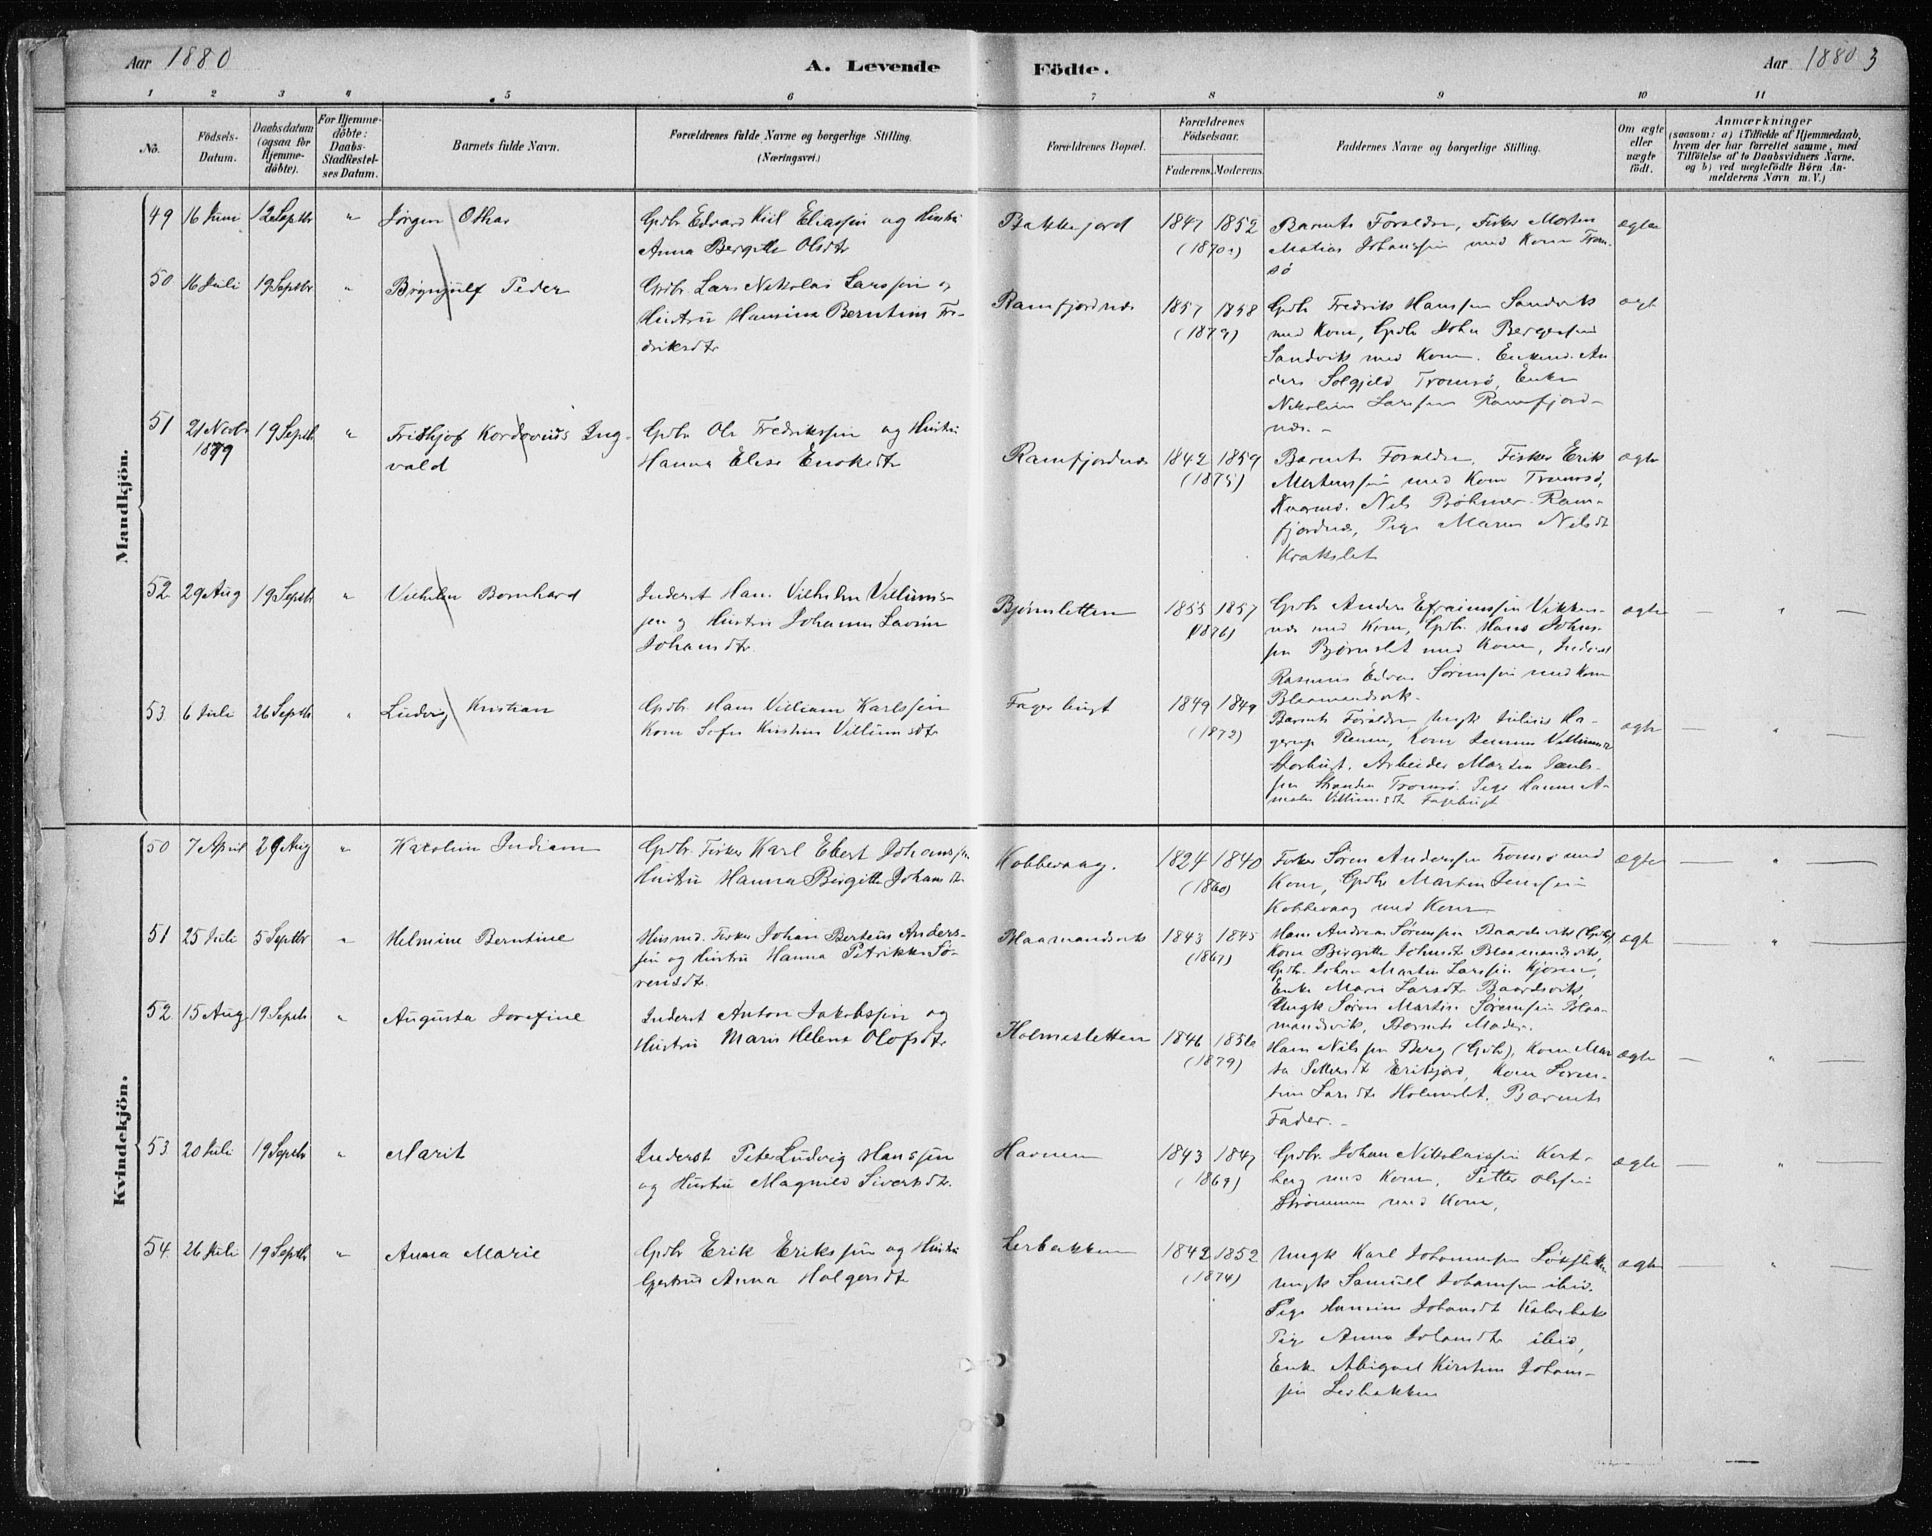 Aar 1880
A. Levende
Födte.
Aar 1880 3
1 2 3 4 5 6 7 8 9 10 11
No.
Födsels-
Datum.
Daabsdatum
(ogsaa for
Hjemme-
döbte).
For Hjemme-
döbte:
Daabs-
Stadfæstel-
ses Datum.
Barnets fulde Navn.
Forældrenes fulde Navne og borgerlige Stilling.
(Næringsvei.)
Forældrenes Bopæl.
Forældrenes
Födselsaar.
Faderens. Moderens.
Faddernes Navne og borgerlige Stilling.
Om ægte
eller
uægte
født.
Anmærkninger
(saasom: a) i Tilfælde af Hjemmedaab,
hvem der har forrettet samme, med
Tilföielse af to Daabsvidners Navne.
og b) ved uægtefödte Börn An-
melderens Navn m. V.)
Mandkjön.
49 16 Juni 12 Septbr " Jørgen Oskar
Gpbr Edvard Kiil Eliassen og Hustru
Anna Bergitte Olsdtr
Bakkejord
1847 1852
(1870)
Barnets Forældre, Fisker Morten
Matias Johanssen med Kone Trom-
sö
ægte
50 16 Juli 19 Septbr " Brynjulf Peder
Gpbr Lars Nikolai Larssen og
Hustru Hansina Berntine Fre-
driksdtr
Ramfjordnæs
1857 1858
(1879)
Gpbr Fredrik Hanssen Sandvik
med Kone, Gpbr John Bergersen
Sandvik med Kone. Enkemd. An-
ders Solgjeld Tromsö, Enke
Nikoline Larssen Ramfjord-
næs.
ægte
51 21 Novbr 1879 19 Septb " Frithjof Kordovius Ing-
vald
Gpbr Ole Fredrikssen og Hustru
Hanna Elise Enoksdtr
Ramfjordnæs
1842 1859
(1875)
Barnets Forældre, Fisker Erik
Mortenssen med Kone Tromsö,
Nils Bøhmer Ram-
fjordnæs, Pige Maren Nilsdt
Krakslet
ægte
52 29 Aug 19 Septbr " Vilhelm Bernhard
Inderst Hans Vilhelm Villums-
sen og Hustru Johanna Lavine
Johansdtr.
Bjørnsletten
1855 1857
(1876)
Gpbr Anders Efraimssen Vikke-
næs med Kone, Gpbr. Hans Johns-
sen Bjørnslet med Kone, Inderst
Rasmus Edvar Sørenssen med Kone
Blaamandsvik.
ægte — " —
53 6 Juli 26 Septbr " Ludvig Kristian
Gpbr Hans Villiam Karlssen
Kone Sofie Kristine Villumsdtr
Fagerbugt
1849 1849
(1872)
Barnets Forældre Ungk Julius Ha-
gerup Kone Villumsdt
Storbugt. Arbeider Martin Pauls-
sen Stranden Tromsö. Pige Hanna A-
malie Villumsdtr Fagerbugt
ægte — " —
Kvindekjön.
50 7 April 29 Aug " Karoline Indiane
Gpbr. Fisker Karl Ebert Johanssen
Hustru Hanna Birgitte Johansdtr
Kobbevaag.
1824 1840
(1860)
Fisker Sören Anderssen Tromsö med
Kone, Gpbr Martin Jenssen
Kobbevaag med Kone
ægte — " —
51 25 Juli 5 Septbr " Helmine Berntine
Husmd. Fisker Johan Berteus Anders-
sen og Hustru Hanna Petrikke Sö-
rensdtr.
Blaamandsvik
1843 1845
(1867)
Hans Andreas Sørenssen Baardsvik (Gpbr)
Kone Birgitte Johnsdt Blaamandsvik,
Gpbr. Johan Martin Larssen Kjosen,
Enke Maria Larsdtr Baardsvik,
Ungk Sören Martin Sørenssen Blaa-
mandsvik, Barnets Moder.
ægte — " —
52 15 Aug 19 Septb " Augusta Josefine
Inderst Anton Jakobssen og
Hustru Maris Helena Olofsdtr
Holmesletten
1846 1856
(1879)
Hans Nilssen Berg (Gpbr), Kone Mar-
ta Pettersdtr Eriksjord, Kone Loren-
tine Larsdtr Holmeslet. Barnets
Fader.
ægte — " —
53 20 Juli 19 Septb " Marit
Inderst Peter Ludvig Hanssen
og Hustru Magnild Sivertsdtr.
Havnen
1843 1847
(1869)
Gpbr. Johan Nikolaissen Kort-
berg med Kone, Petter Olssen
Strømmen med Kone,
ægte — " —
54 26 Juli 19 Septb " Anna Marie
Gpbr Erik Erikssen og Hustru
Gjertrud Anna Holgersdtr
Lerbakken
1842 1852
(1874)
Ungk Karl Johannessen
Ungk Samuel Johanssen ibid.
Pige Hansine Johansdtr Kalvebak
Pige Anna Johansdtr ibid,
Enke Abigael Kirstine Johans-
sen Lerbakken
ægte — " —